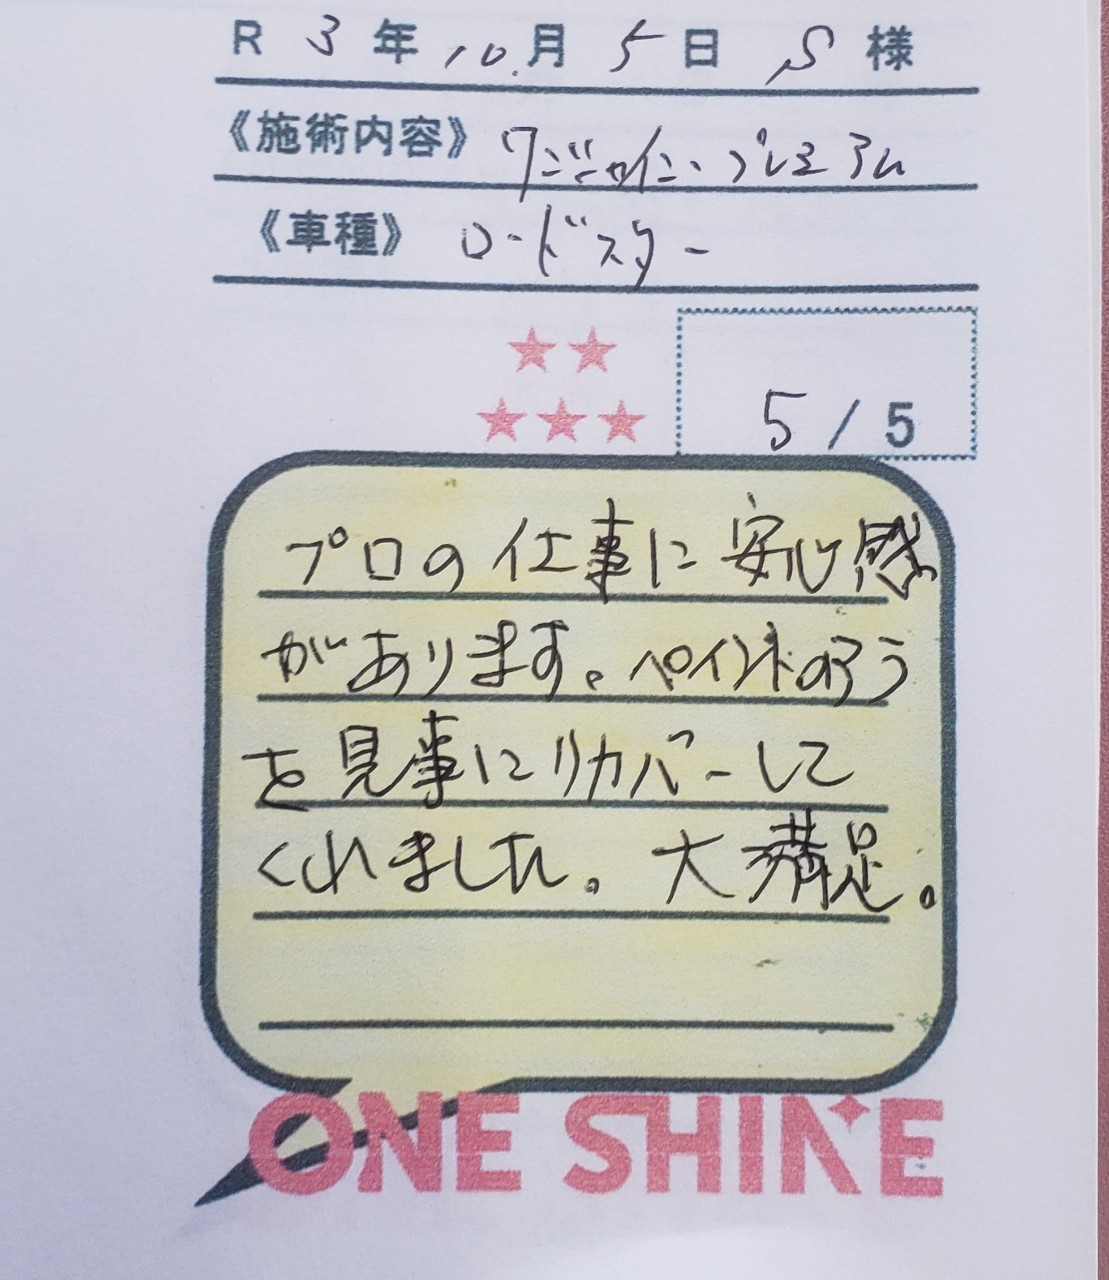 R 3 年 10.月 5 日 S 様
《施術内容》 ワンシャイン・プレミアム
《車種》 ロードスター
5 / 5
プロの仕事に安心感
があります。ペイントのほう
を見事にリカバーして
くれました。大満足。
ONE SHINE